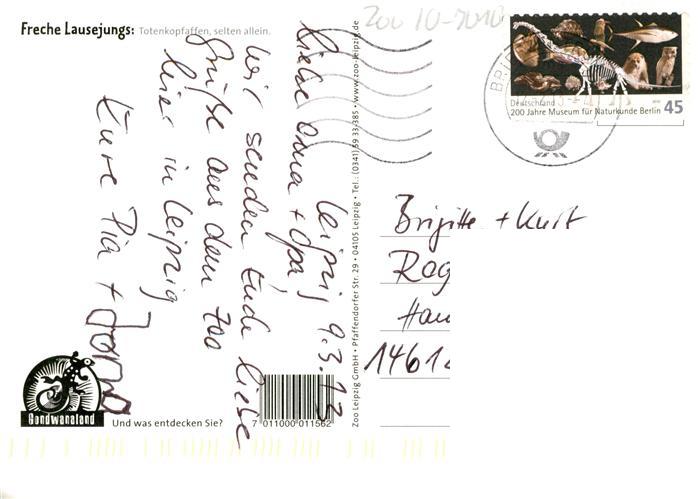 Freche Lausejungs: Totenkopfaffen, selten allein.
Zoo 10-2010
Leipzig 9.3.13
Liebe Oma + Opa,
wir senden Eude liebe
Grüße aus dem Zoo
hier in Leipzig
Eure Pia + Jarno
Gondwanaland
Und was entdecken Sie?
7 011000 011562
Zoo Leipzig GmbH • Pfaffendorfer Str. 29 • 04105 Leipzig • Tel.: (0341) 59 33 385 • www.zoo-leipzig.de
Deutschland
200 Jahre Museum für Naturkunde Berlin 45
BRIE
Brigitte + Kurt
Rog
Hau
1461